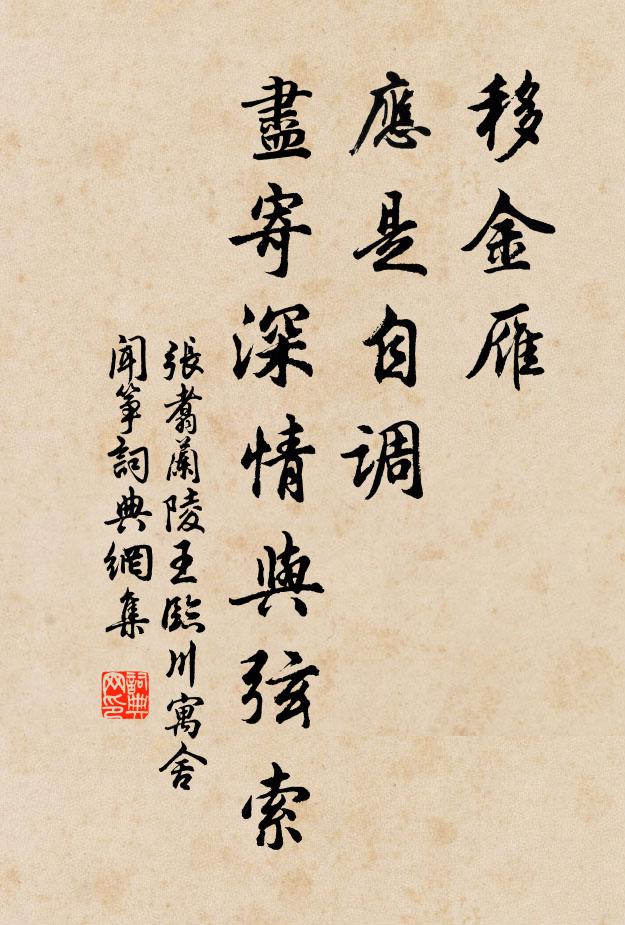 移金雁
應是自調
盡寄深情與弦索
張翥蘭陵王臨川寓舍
聞箏詞典網集
詞典
网印